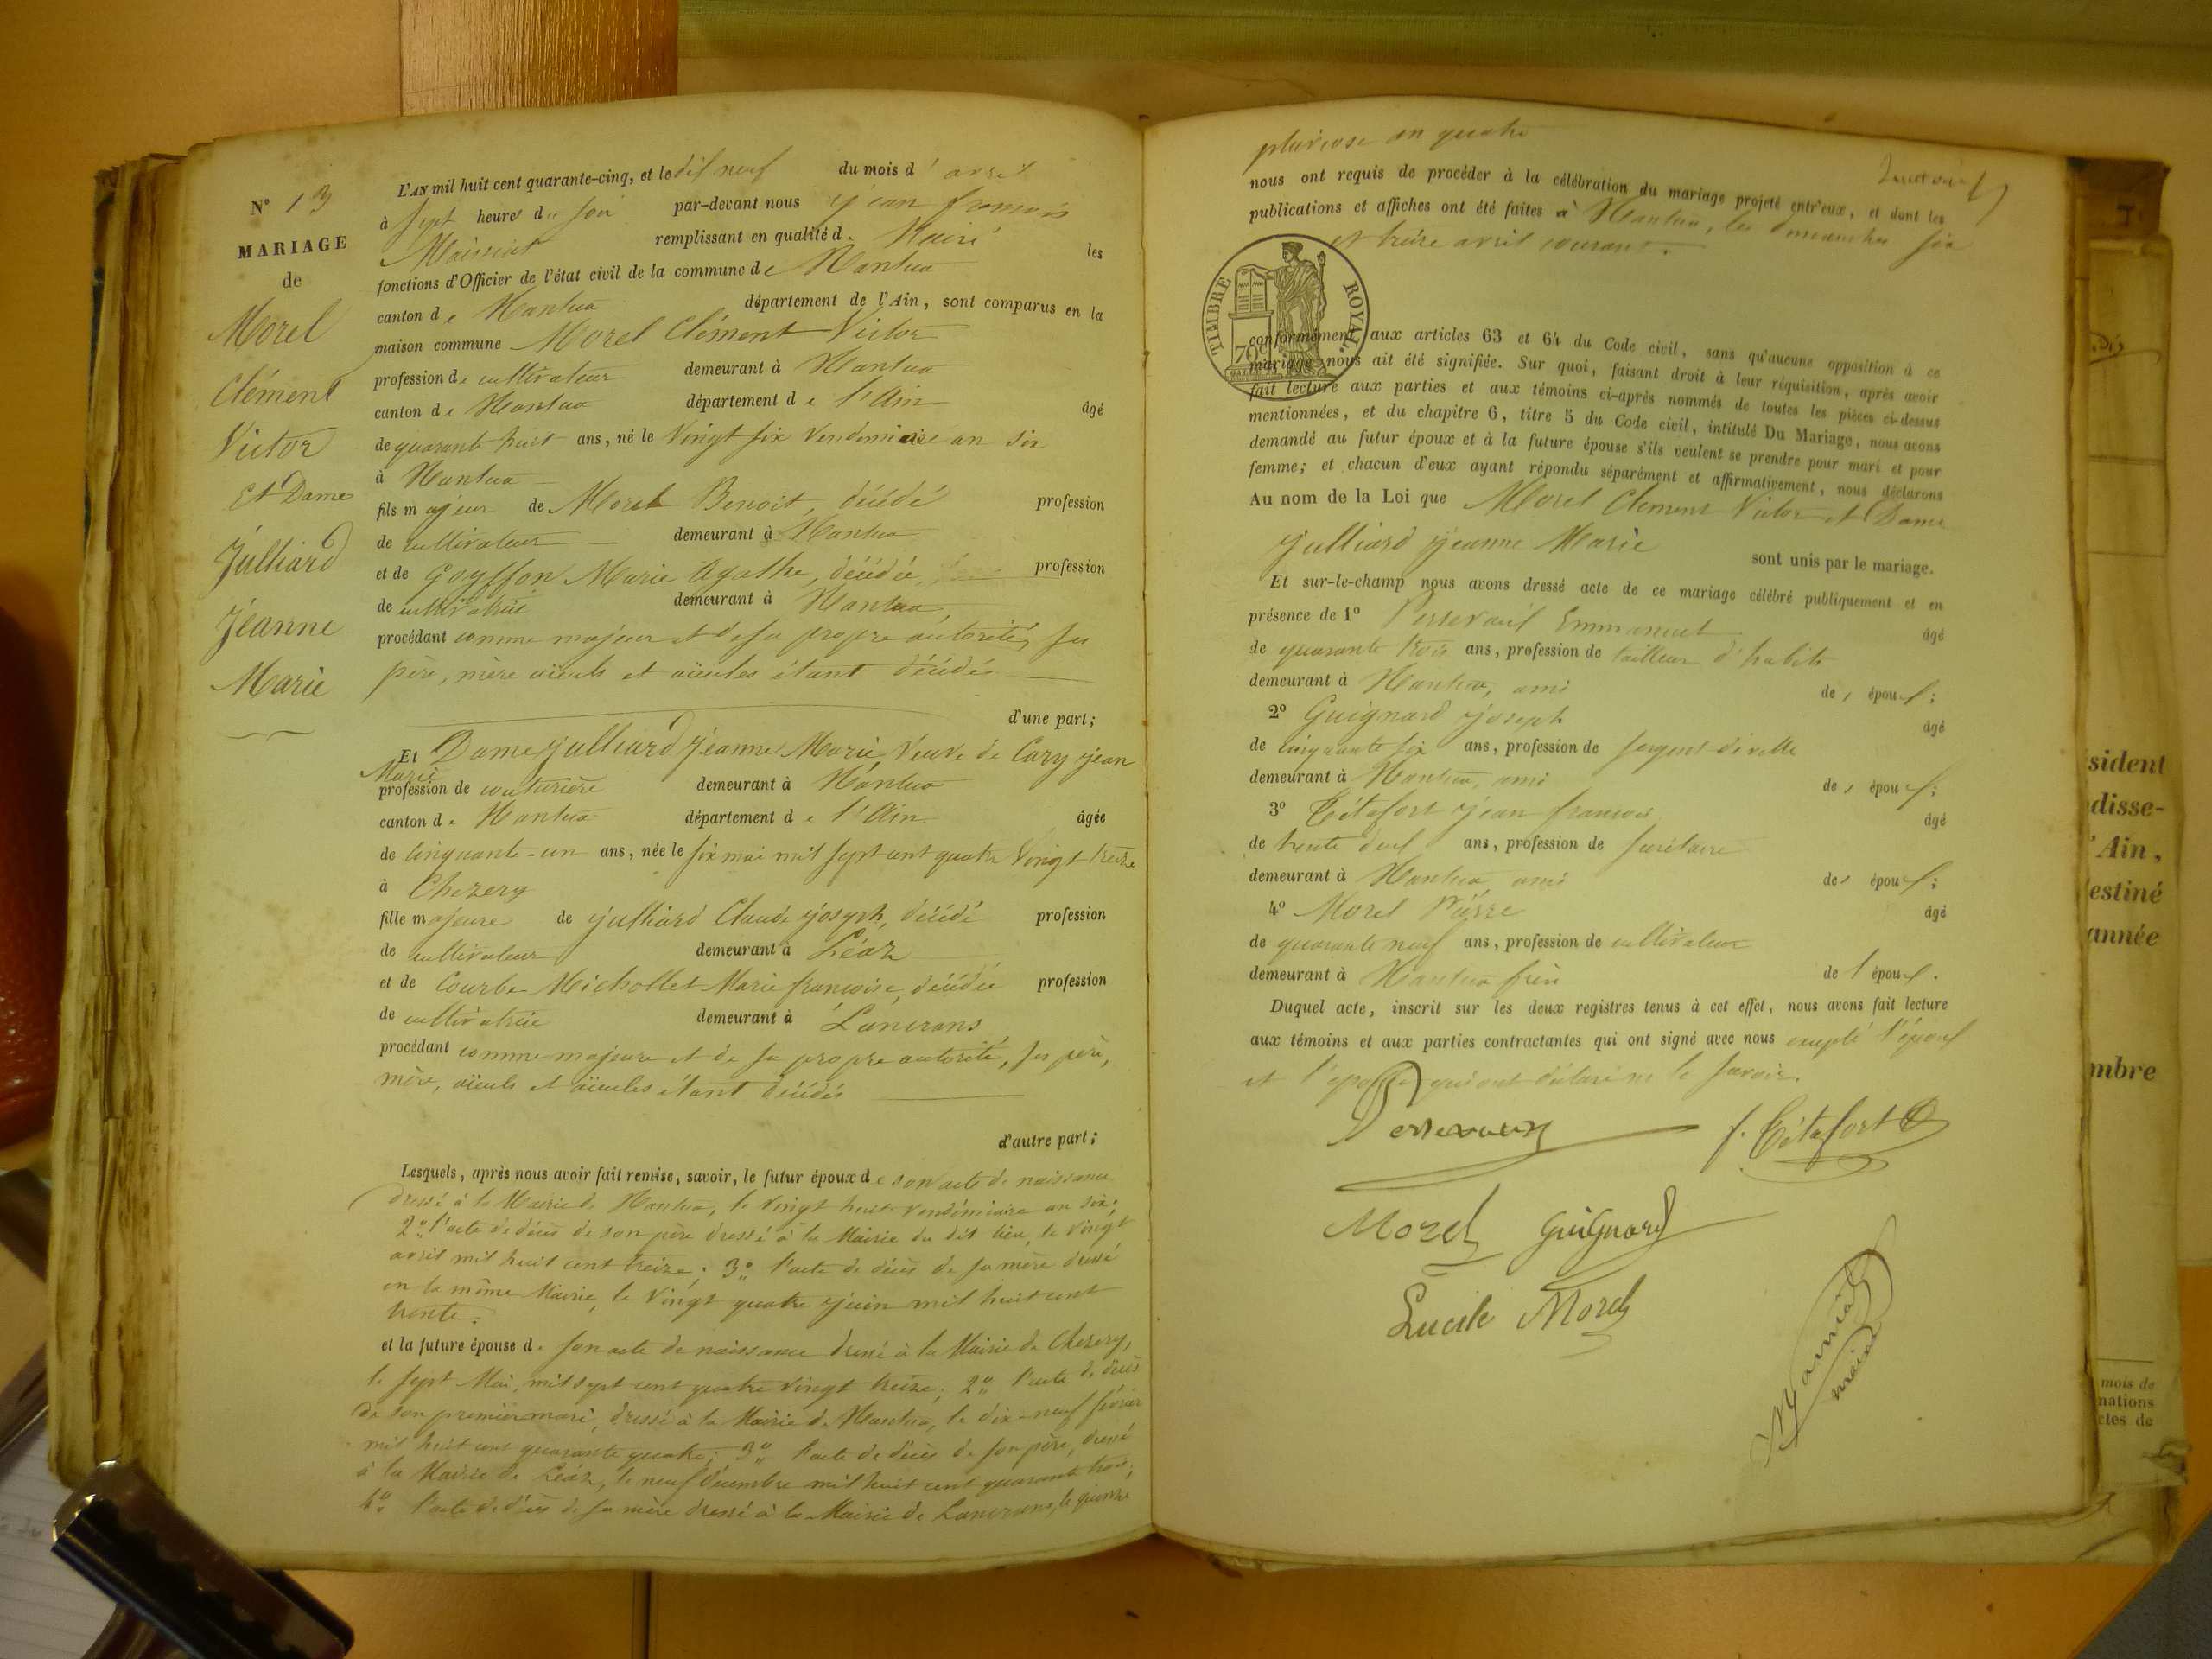 N° 13
MARIAGE
de
Morel
Clément
Victor
Et Dame
Julliard
Jeanne
Marie
L'AN mil huit cent quarante-cinq, et le dix neuf du mois d'avril
à sept heures du soir par-devant nous Jean françois
Maissiat remplissant en qualité de Maire les
fonctions d'Officier de l'état civil de la commune de Nantua
canton de Nantua département de l'Ain, sont comparus en la
maison commune Morel Clément Victor
profession de cultivateur demeurant à Nantua
canton de Nantua département de l'Ain âgé
de quarante huit ans, né le Vingt six Vendémiaire an six
à Nantua
fils majeur de Morel Benoit, décédé profession
de cultivateur demeurant à Nantua
et de Goyffon Marie Agathe, décédée profession
de cultivatrice demeurant à Nantua
procédant comme majeur et de sa propre autorité, ses
père, mère aïeuls et aïeules étant décédés
d'une part;
Et Dame Julliard Jeanne Marie Veuve de Cary Jean
Marie
profession de couturière demeurant à Nantua
canton de Nantua département de l'Ain âgée
de cinquante-un ans, née le six mai mil sept cent quatre Vingt treize
à Chezery
fille majeure de Julliard Claude Joseph, décédé profession
de cultivateur demeurant à Léaz
et de Courbe Michollet Marie françoise, décédée profession
de cultivatrice demeurant à Lancrans
procédant comme majeure et de sa propre autorité, ses père,
mère, aïeuls et aïeules étant décédés
d'autre part;
Lesquels, après nous avoir fait remise, savoir, le futur époux de son acte de naissance
dressé à la Mairie de Nantua, le Vingt huit vendémiaire an six;
2° l'acte de décès de son père dressé à la Mairie du dit lieu, le Vingt
avril mil huit cent treize; 3° l'acte de décès de sa mère dressé
en la même Mairie, le Vingt quatre Juin mil huit cent
trente.
et la future épouse de son acte de naissance dressé à la Mairie de Chezery,
le sept Mai, mil sept cent quatre vingt treize; 2° l'acte de décès
de son premier mari, dressé à la Mairie de Nantua, le dix-neuf février
mil huit cent quarante quatre; 3° l'acte de décès de son père, dressé
à la Mairie de Léaz, le neuf décembre mil huit cent quarante trois;
4° l'acte de décès de sa mère dressé à la Mairie de Lancrans, le quinze
pluviose an quatre
nous ont requis de procéder à la célébration du mariage projeté entr'eux, et dont les
publications et affiches ont été faites à Nantua, les dimanches six
et treize avril courant.
TIMBRE ROYAL.
conformément aux articles 63 et 64 du Code civil, sans qu'aucune opposition à ce
mariage nous ait été signifiée. Sur quoi, faisant droit à leur réquisition, après avoir
fait lecture aux parties et aux témoins ci-après nommés de toutes les pièces ci-dessus
mentionnées, et du chapitre 6, titre 5 du Code civil, intitulé Du Mariage, nous avons
demandé au futur époux et à la future épouse s'ils veulent se prendre pour mari et pour
femme; et chacun d'eux ayant répondu séparément et affirmativement, nous déclarons
Au nom de la Loi que Morel Clement Victor et Dame
Julliard Jeanne Marie sont unis par le mariage.
Et sur-le-champ nous avons dressé acte de ce mariage célébré publiquement et en
présence de 1° Emmanuel âgé
de quarante trois ans, profession de tailleur d'habits
demeurant à Nantua, ami des époux;
2° Guignard Joseph âgé
de cinquante six ans, profession de sergent de ville
demeurant à Nantua, ami des époux;
3° Tétafort Jean françois âgé
de ans, profession de secrétaire
demeurant à Nantua, ami des époux;
4° Morel Pierre âgé
de quarante neuf ans, profession de cultivateur
demeurant à Nantua frère de l'époux.
Duquel acte, inscrit sur les deux registres tenus à cet effet, nous avons fait lecture
aux témoins et aux parties contractantes qui ont signé avec nous excepté l'époux
et l'épouse qui ont déclaré ne le savoir.
f. Tétafort
Morel Guignard
Lucile Morel
maire
sident
disse-
Ain,
estiné
année
mbre
mois de
nations
ctes de